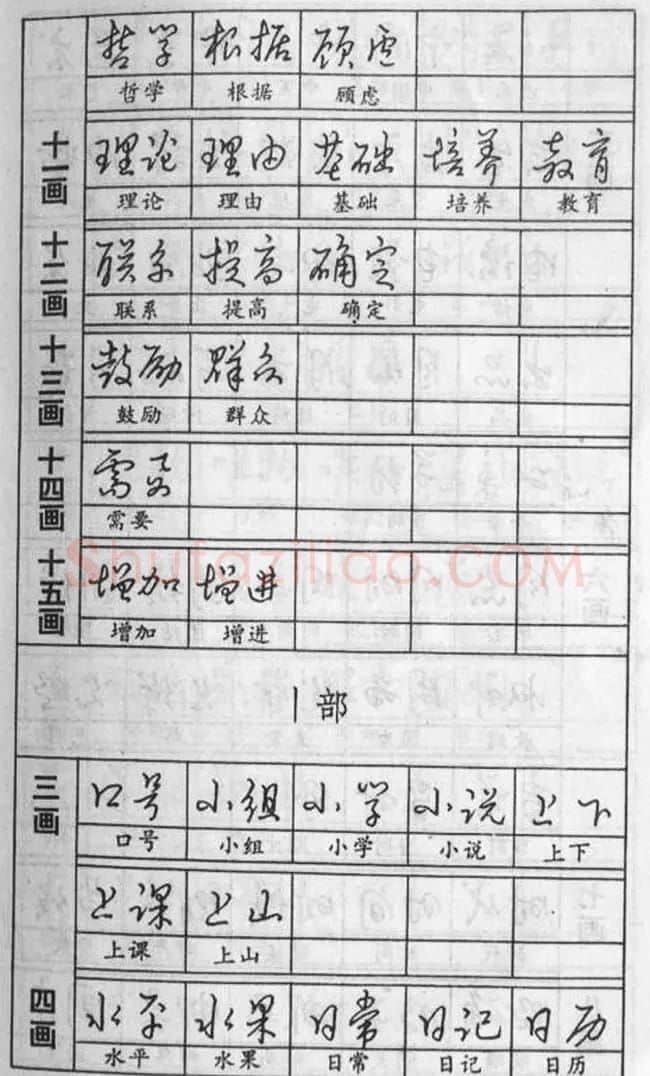 哲学 根据 顾虑
哲学 根据 顾虑
十一画 理论 理由 基础 培养 教育
理论 理由 基础 培养 教育
十二画 联系 提高 确定
联系 提高 确定
十三画 鼓励 群众
鼓励 群众
十四画 需要
需要
Shufaziliao.COM
十五画 增加 增进
增加 增进
丨部
三画 口号 小组 小学 小说 上下
口号 小组 小学 小说 上下
上课 上山
上课 上山
四画 水平 水果 日常 日记 日历
水平 水果 日常 日记 日历